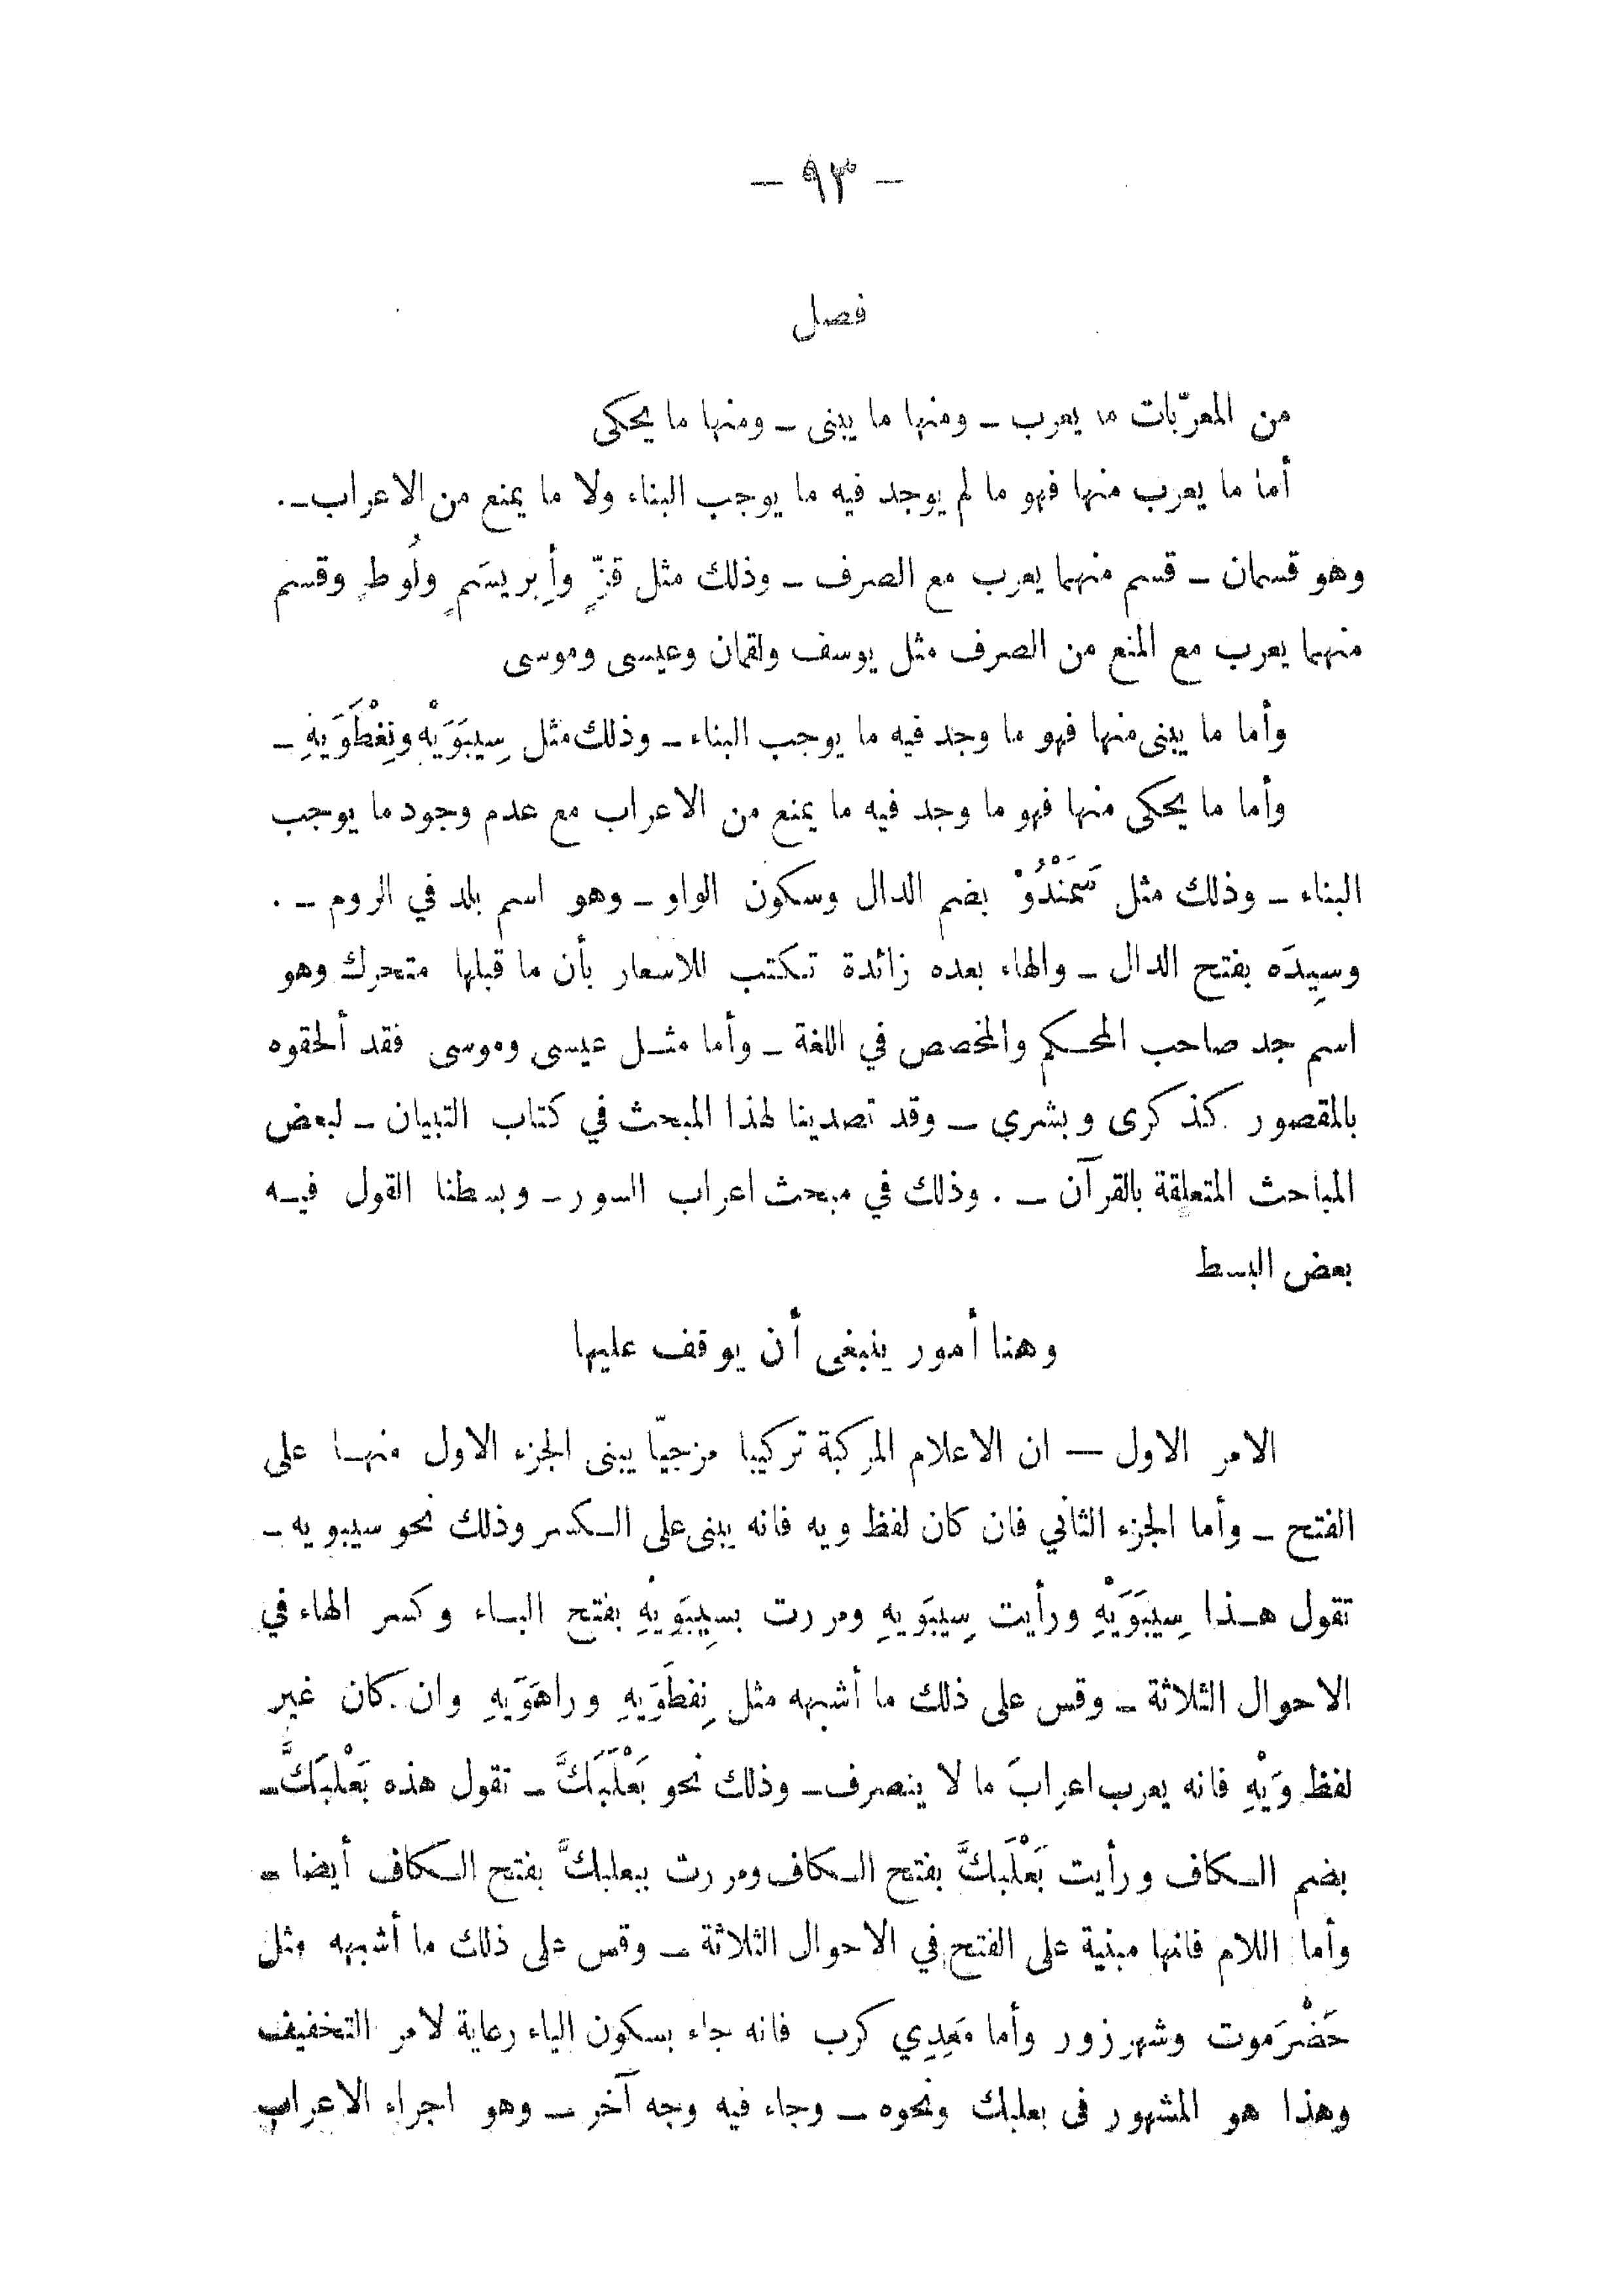 – ٩٣ –
فصل
من المعرّبات ما يعرب – ومنها ما يبنى – ومنها ما يحكى
أما ما يعرب منها فهو ما لم يوجد فيه ما يوجب البناء ولا ما يمنع من الاعراب – .
وهو قسمان – قسم منهما يعرب مع الصرف – وذلك مثل قزٍّ وأِبريسَمٍ ولُوطٍ وقسم
منهما يعرب مع المنع من الصرف مثل يوسف ولقمان وعيسى وموسى
وأما ما يبنى منها فهو ما وجد فيه ما يوجب البناء – وذلك مثل سِيبَوَيْهِ ونِفْطَوَيْهِ –
وأما ما يحكى منها فهو ما وجد فيه ما يمنع من الاعراب مع عدم وجود ما يوجب
البناء – وذلك مثل سَمَنْدُوْ بضم الدال وسكون الواو – وهو اسم بلد في الروم – .
وسِيدَه بفتح الدال – والهاء بعده زائدة تكتب للاسعار بأن ما قبلها متحرك وهو
اسم جد صاحب المحكم والمخصص في اللغة – وأما مثل عيسى وموسى فقد ألحقوه
بالمقصور كذكرى وبشرى – وقد تصدينا لهذا المبحث في كتاب التبيان – لبعض
المباحث المتعلقة بالقرآن – . وذلك في مبحث اعراب السور – وبسطنا القول فيه
بعض البسط
وهنا أمور ينبغى أن يوقف عليها
الامر الاول — ان الاعلام المركبة تركيبا مزجيّا يبنى الجزء الاول منها على
الفتح – وأما الجزء الثاني فان كان لفظ ويه فانه يبنى على الكسر وذلك نحو سيبويه –
تقول هذا سِيبَوَيْهِ ورأيت سِيبَوَيهِ ومررت بسِيبَوَيْهِ بفتح الباء وكسر الهاء في
الاحوال الثلاثة – وقس على ذلك ما أشبهه مثل نِفطَوَيهِ وراهَوَيهِ وان كان غير
لفظ وَيْهِ فانه يعرب اعرابَ ما لا ينصرف – وذلك نحو بَعْلَبَكَّ – تقول هذه بَعْلَبَكَّ –
بضم الكاف ورأيت بَعْلَبكَّ بفتح الكاف ومررت ببعلبكَّ بفتح الكاف أيضا –
وأما اللام فانها مبنية على الفتح في الاحوال الثلاثة – وقس على ذلك ما أشبهه مثل
حَضْرَموت وشهرزور وأما مَعدِي كرب فانه جاء بسكون الياء رعاية لامر التخفيف
وهذا هو المشهور فى بعلبك ونحوه – وجاء فيه وجه آخر – وهو اجراء الاعراب